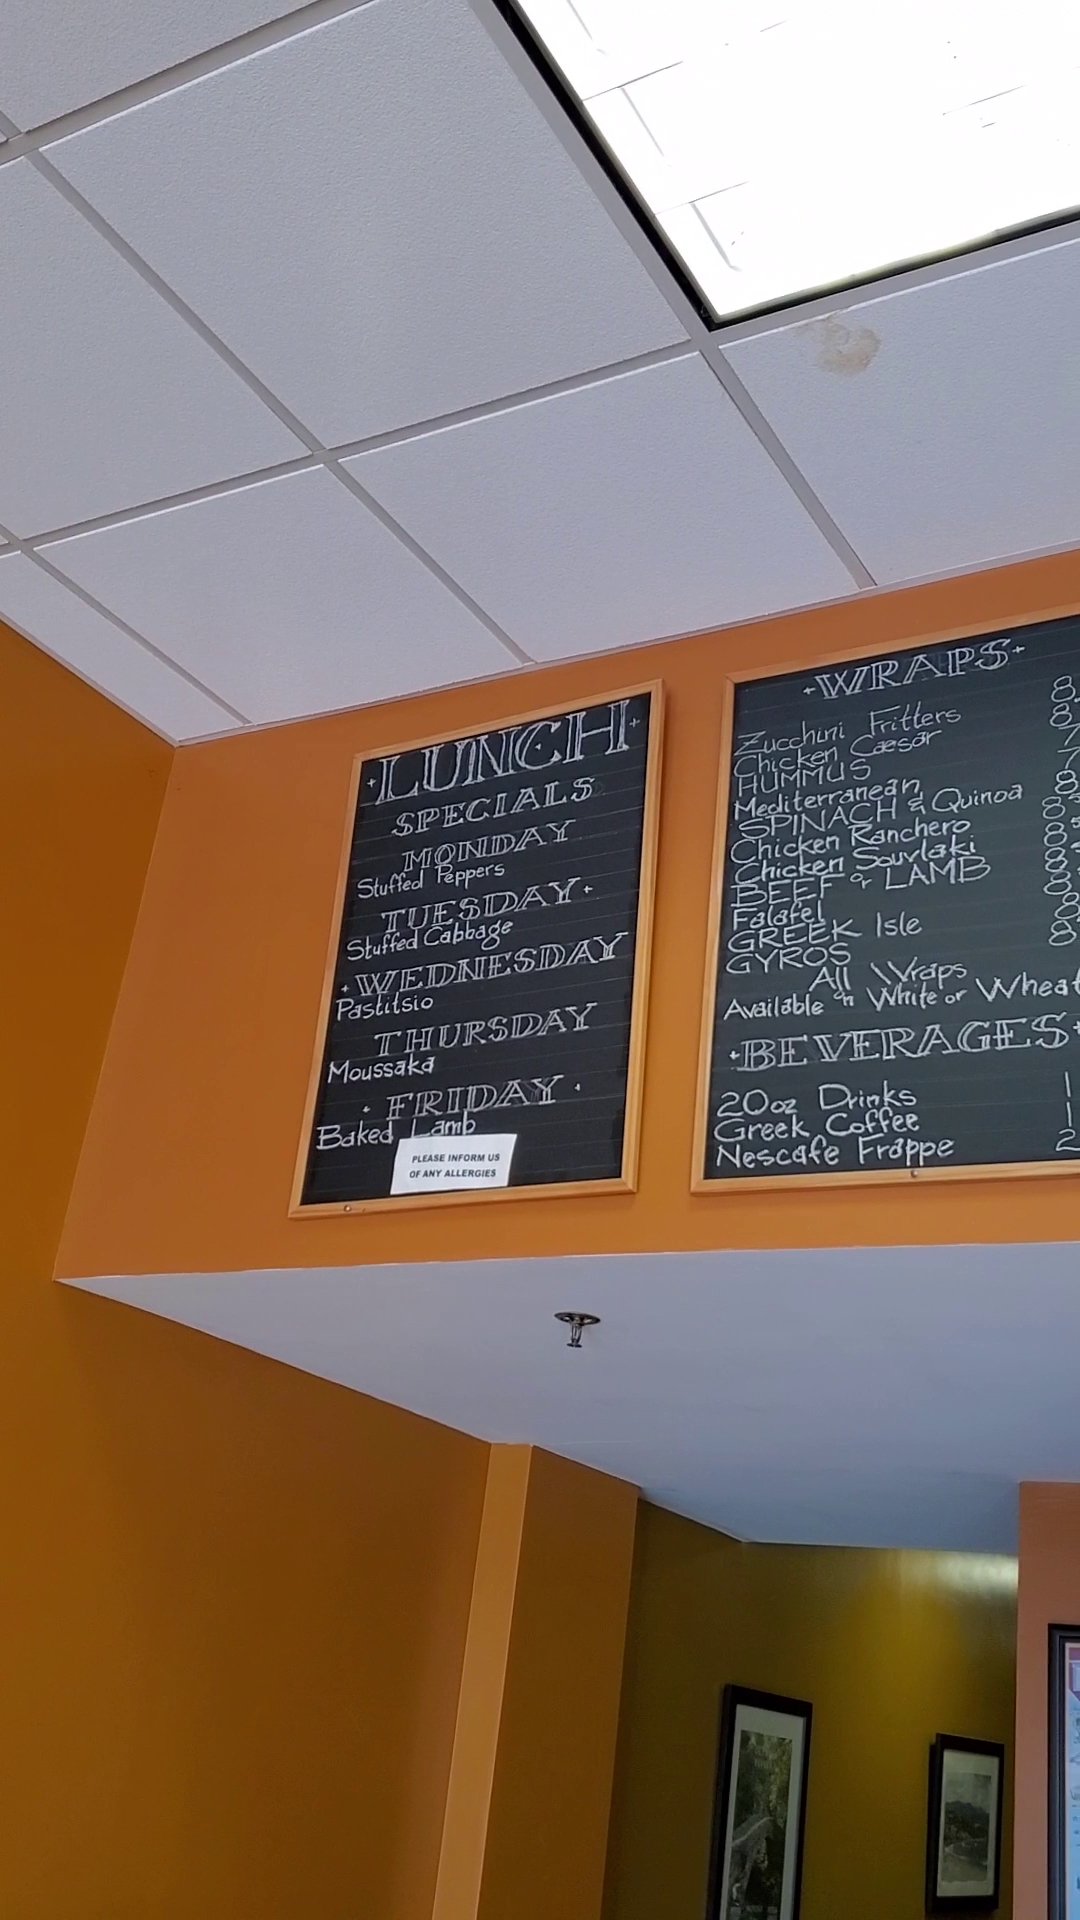 LUNCH
SPECIALS
MONDAY
Stuffed Peppers
TUESDAY
Stuffed Cabbage
WEDNESDAY
Pastitsio
THURSDAY
Moussaka
FRIDAY
Baked Lamb
PLEASE INFORM US
OF ANY ALLERGIES
WRAPS
Zucchini Fritters 8.
Chicken Caesar 8.
HUMMUS 7
Mediterranean 7
SPINACH & Quinoa 8.
Chicken Ranchero 8.
Chicken Souvlaki 8.
BEEF or LAMB 8.
Falafel 8.
GREEK Isle 8.
GYROS 8.
All Wraps
Available in White or Wheat
BEVERAGES
20oz Drinks 1
Greek Coffee 1
Nescafe Frappe 2